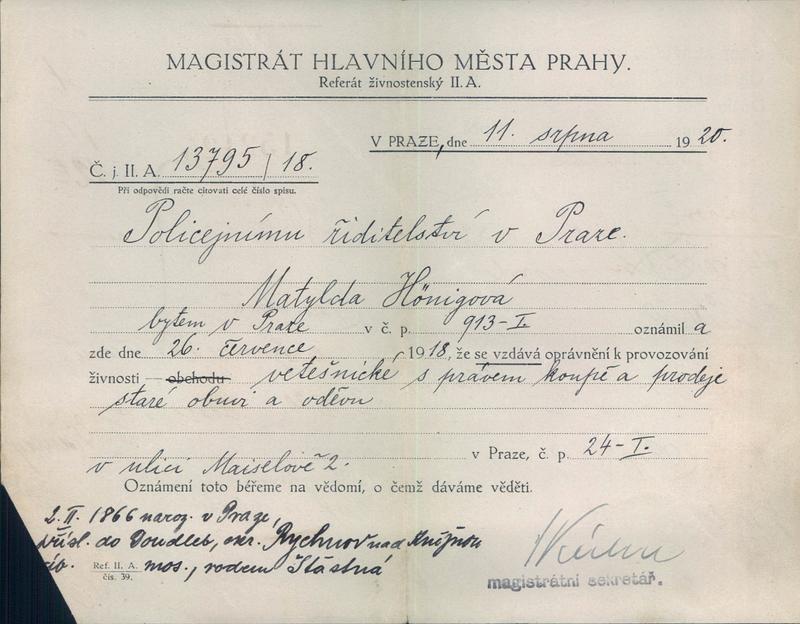 MAGISTRÁT HLAVNÍHO MĚSTA PRAHY.
Referát živnostenský II. A.
V PRAZE, dne 11. srpna 1920.
Č. j. II. A. 13795/18.
Při odpovědi račte citovati celé číslo spisu.
Policejnímu řiditelství v Praze.
Matylda Hönigová
bytem v Praze v č. p. 913-I. oznámil a
zde dne 26. července 1918, že se vzdává oprávnění k provozování
živnosti obchodu vetešnické s právem koupě a prodeje
staré obuvi a oděvu
v ulici Maiselově 2. v Praze, č. p. 24-I.
Oznámení toto béřeme na vědomí, o čemž dáváme věděti.
2. II. 1866 naroz. v Praze,
přísl. do Doudleb, okr. Rychnov nad Kněžnou
mos., rodem Šťastná
Ref. II. A.
čís. 39.
magistrátní sekretář.